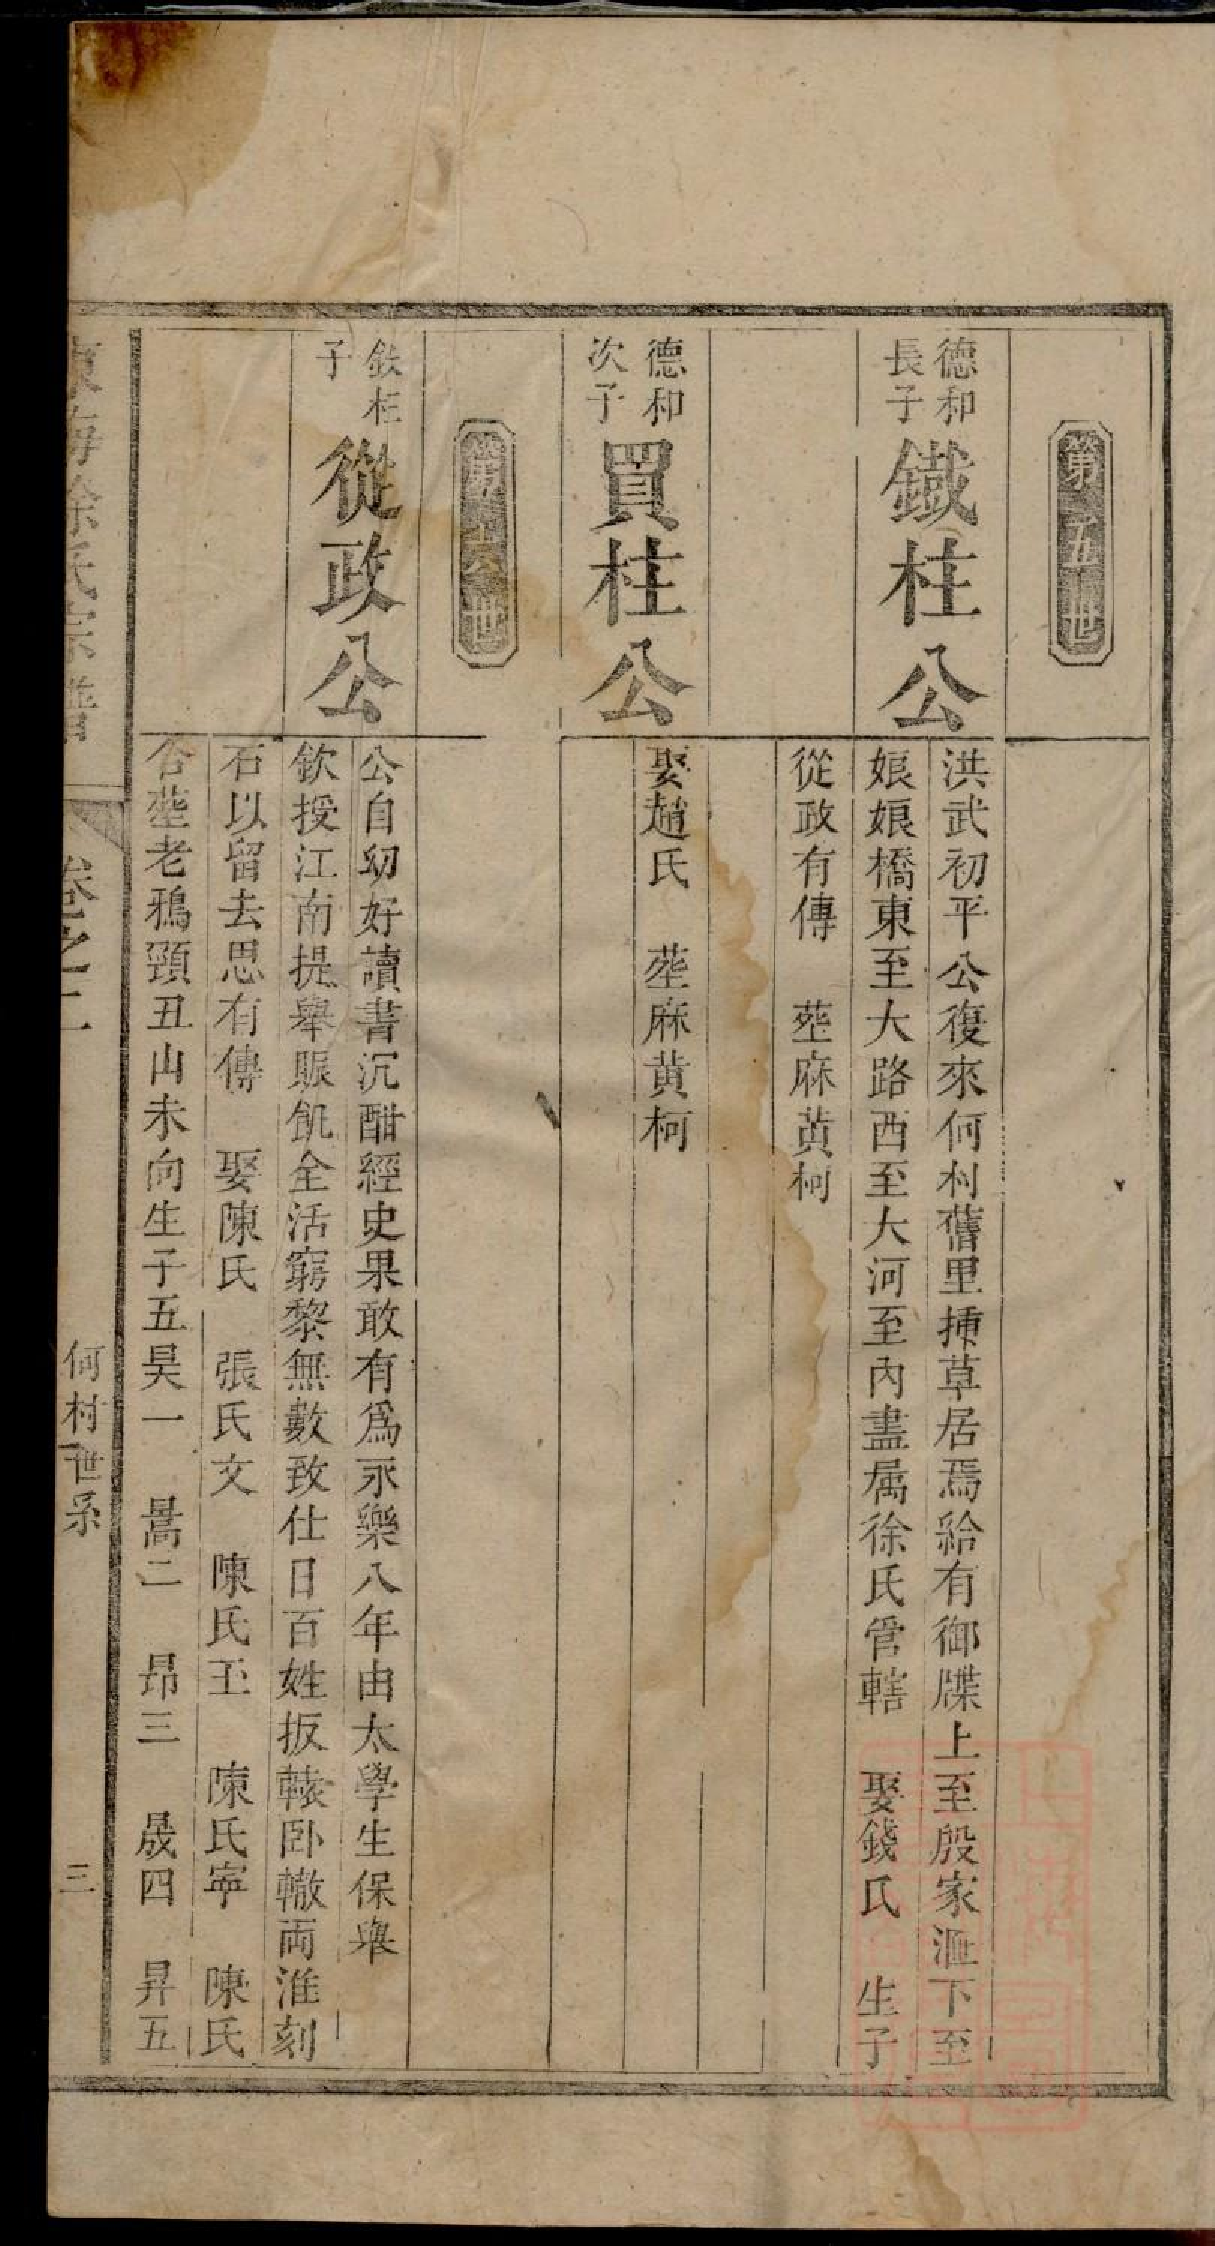 第五世
德和
長子
鐵柱公
洪武初平公復來何村舊里揷草居焉給有御牒上至殷家滙下至
娘娘橋東至大路西至大河至內盡属徐氏管轄　娶錢氏　生子
從政有傳　塟麻黄柯
德和
次子
買柱公
娶趙氏　塟麻黄柯
第六世
鉄柱
子
從政公
公自幼好讀書沉酣經史果敢有爲永樂八年由太學生保舉
欽授江南提舉賑飢全活窮黎無數致仕日百姓扳轅卧轍両淮刻
石以留去思有傳　娶陳氏　張氏文　陳氏玉　陳氏寧　陳氏
合塟老鴉頸丑山未向生子五昊一　暠二　昂三　晟四　昇五
東海徐氏宗譜
卷之二
何村世系
三